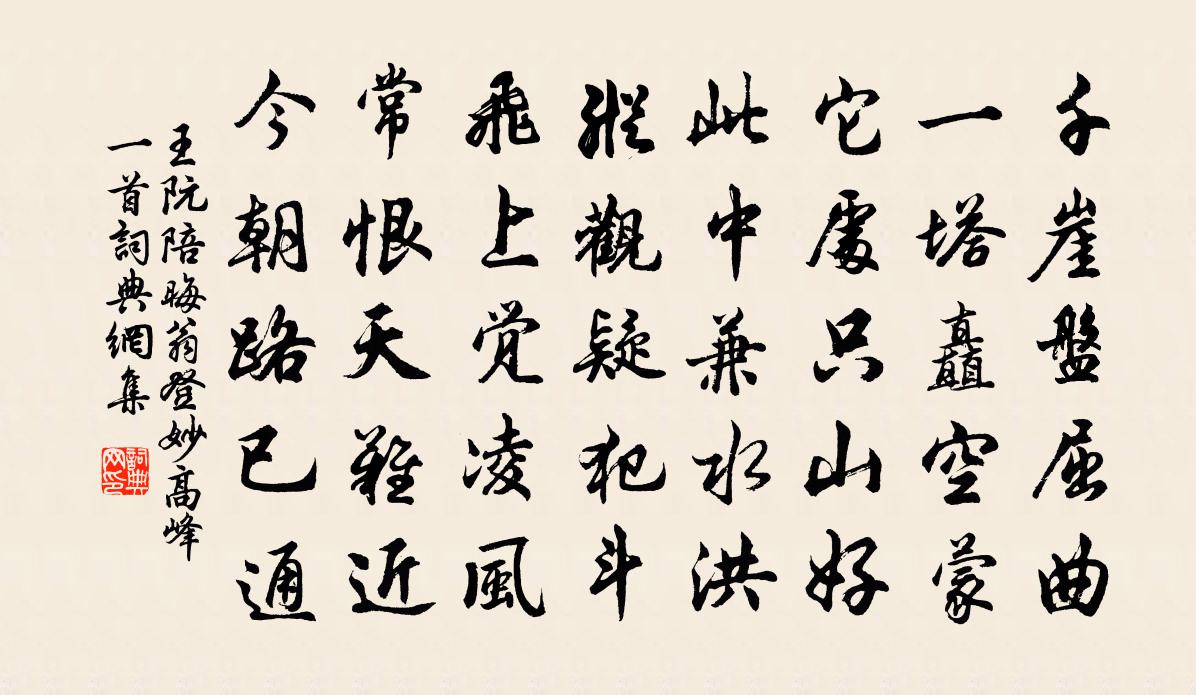 千崖盤屈曲
一塔矗空蒙
它處只山好
此中兼水洪
縱觀疑犯斗
飛上覚凌風
常恨天難近
今朝路已通
王阮陪晦翁登妙高峰
一首詞典網集
詞典网印